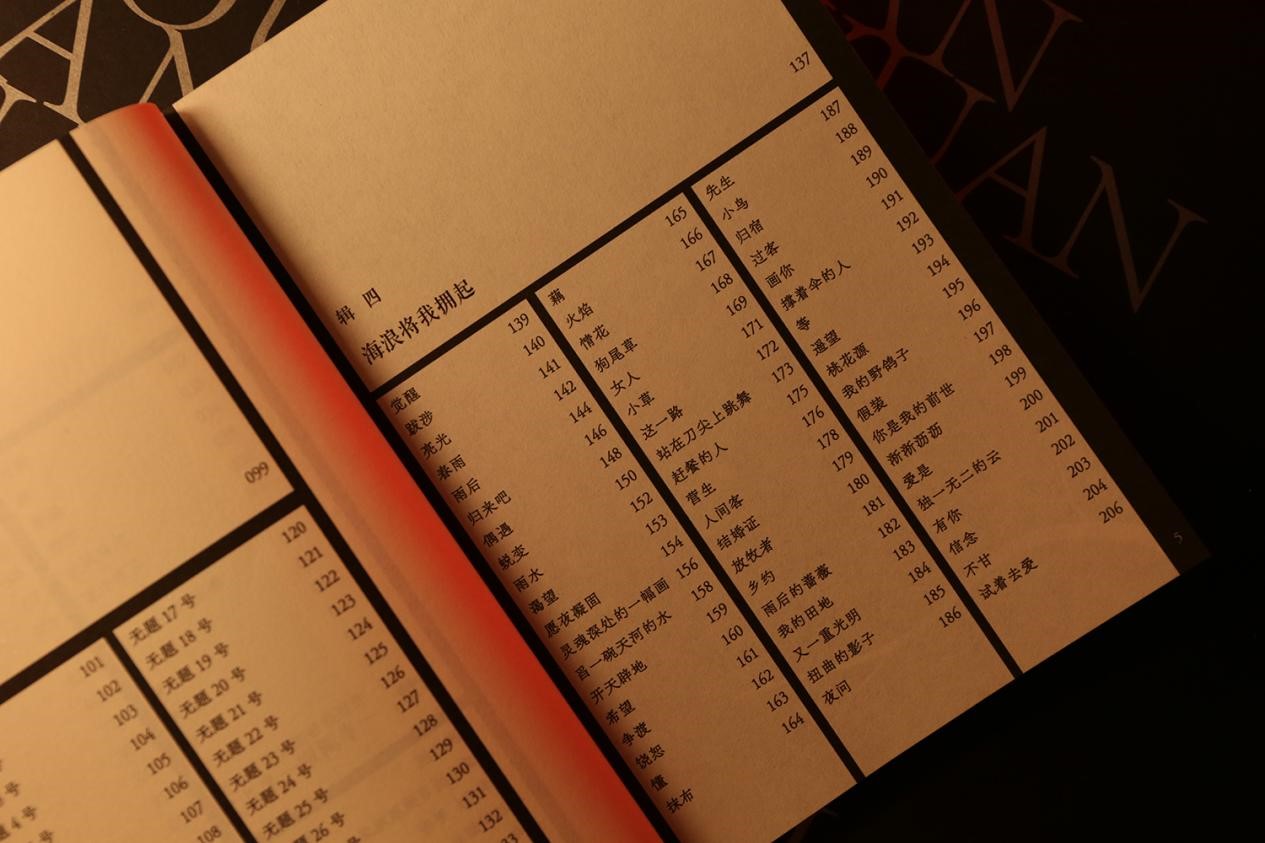 099
101
102
103
104
105
106
107
108
无题 17 号 120
无题 18 号 121
无题 19 号 122
无题 20 号 123
无题 21 号 124
无题 22 号 125
无题 23 号 126
无题 24 号 127
无题 25 号 128
无题 26 号 129
130
131
132
辑 四
海浪将我拥起 137
觉醒 139
跋涉 140
亮光 141
春雨 142
雨后 144
归来吧 146
偶遇 148
蜕变 150
雨水 152
渴望 153
愿夜凝固 154
灵魂深处的一幅画 156
舀一碗天河的水 158
开天辟地 159
希望 160
争渡 161
饶恕 162
懂 163
抹布 164
藕 165
火焰 166
情花 167
狗尾草 168
女人 169
小草 171
这一路 172
站在刀尖上跳舞 173
赶餐的人 175
营生 176
人间客 178
结婚证 179
放牧者 180
乡约 181
雨后的蔷薇 182
我的田地 183
又一重光明 184
扭曲的影子 185
夜问 186
先生 187
小鸟 188
归宿 189
过客 190
画你 191
撑着伞的人 192
等 193
遥望 194
桃花源 195
我的野鸽子 196
假装 197
你是我的前世 198
淅淅沥沥 199
爱是 200
独一无二的云 201
有你 202
信念 203
不甘 204
试着去爱 206
5